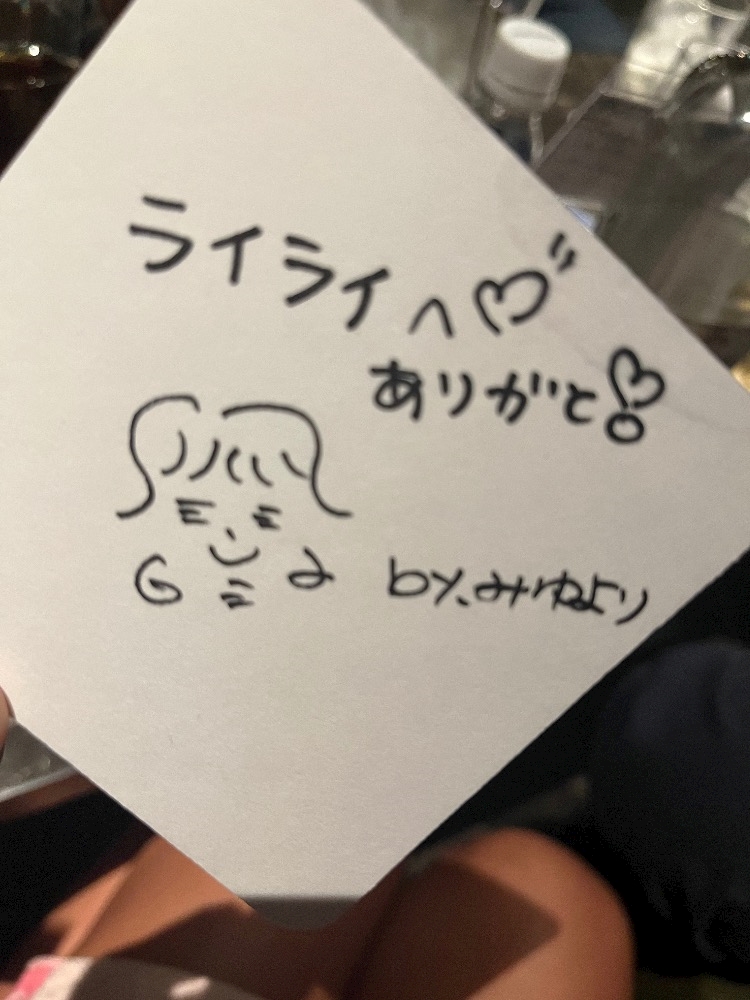 ライライへ♡"
ありがと♡
by.みゆより